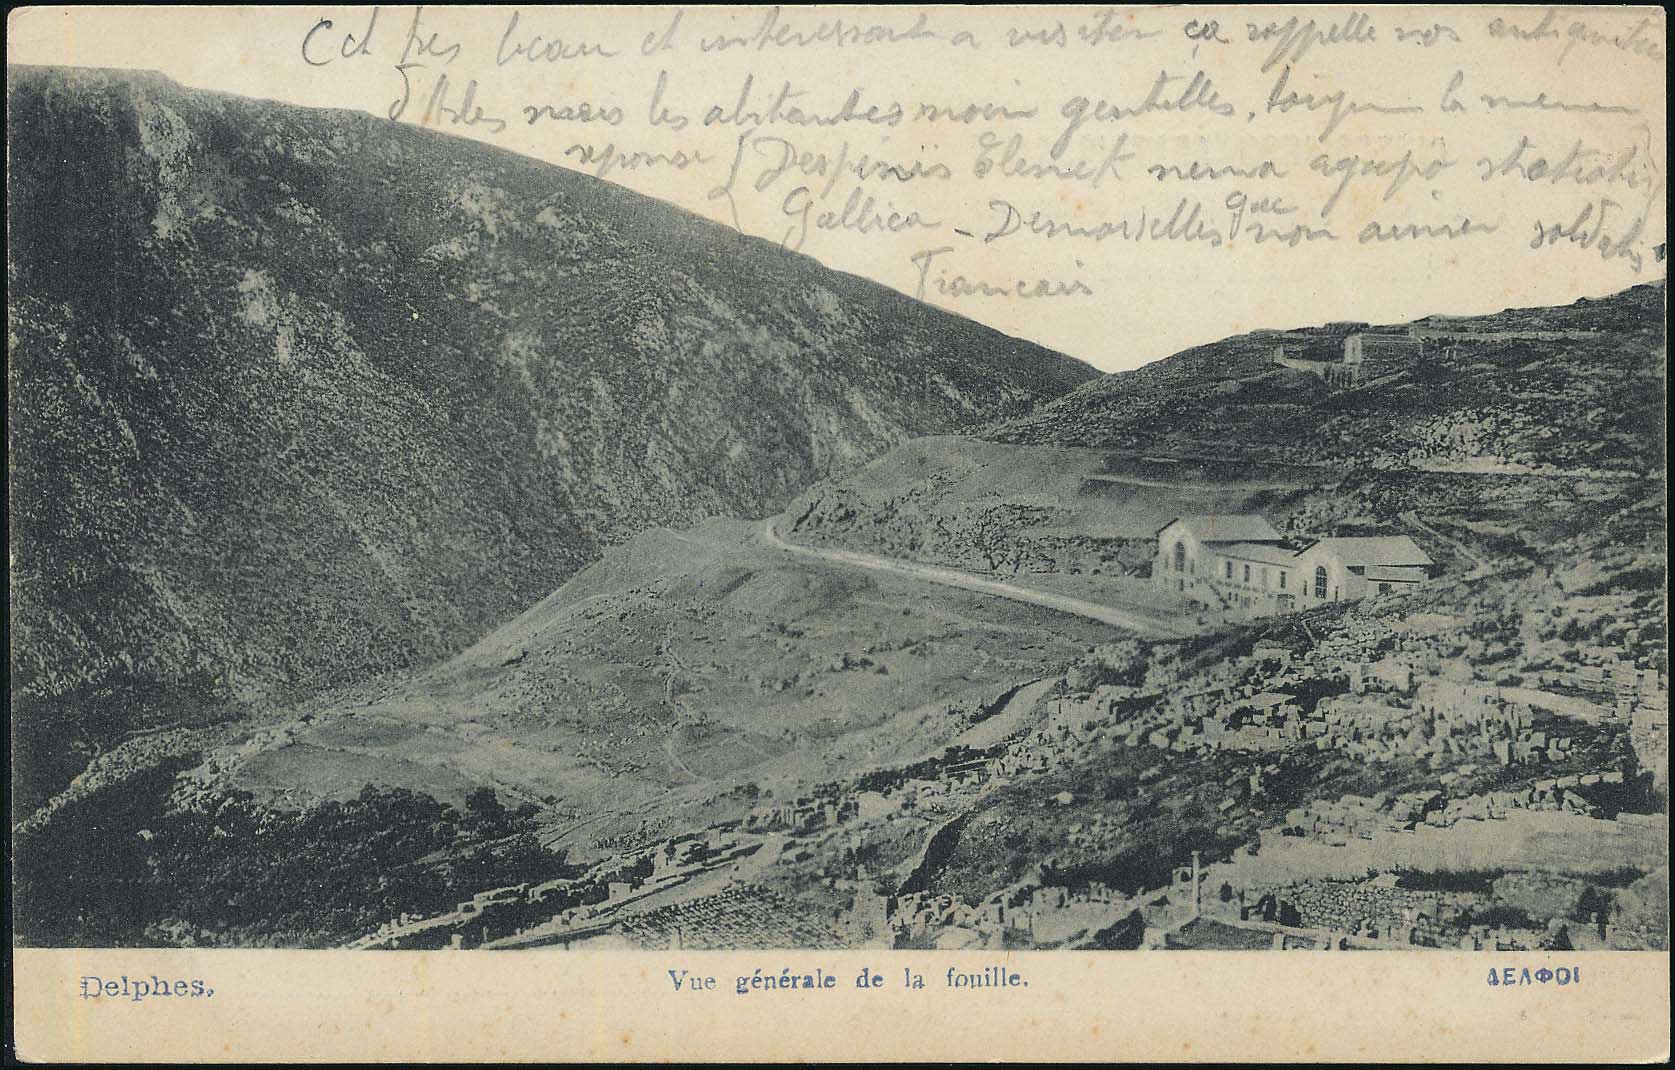 Cet tres beau et interessant a visiter ca rappelle nos antiquites
d'Arles mais les abitantes moin gentilles, toujour la meme
reponse { Despinis Elenet nema agapo stratiotis
Gallica - Demoiselles que non aimer soldats
Francais
Delphes. Vue générale de la fouille. ΔΕΛΦΟΙ